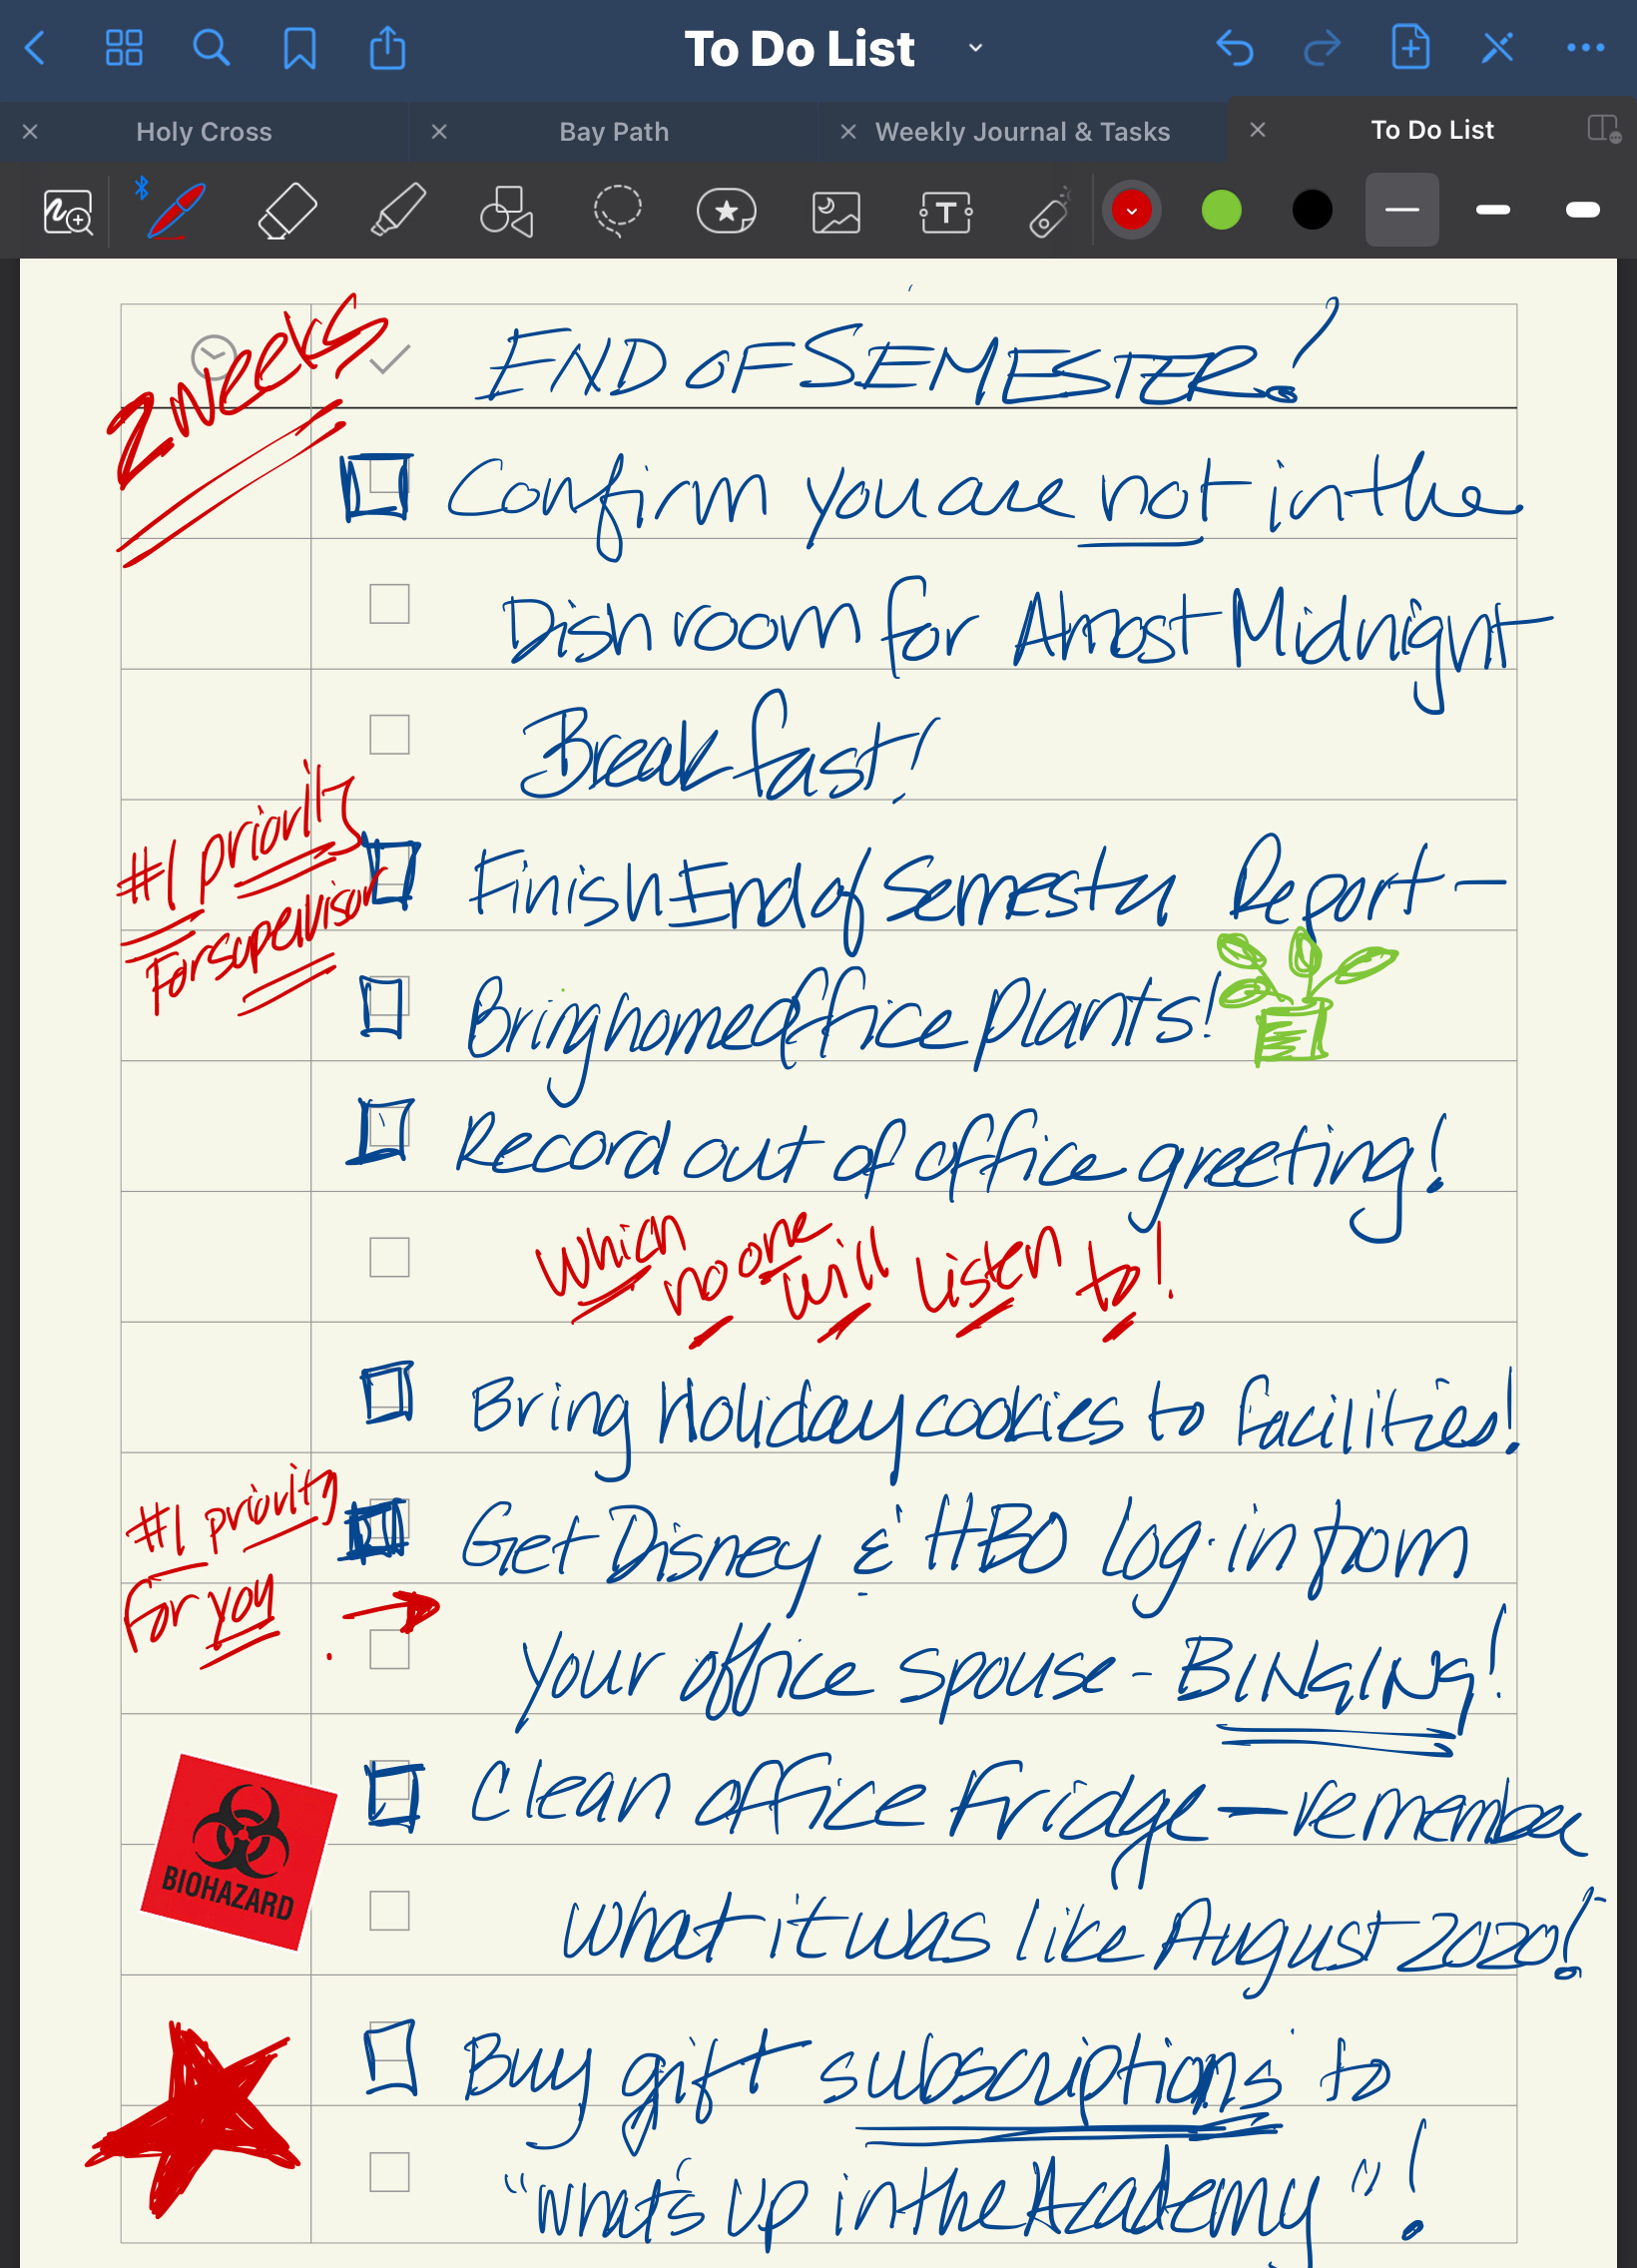 To Do List
Holy Cross
Bay Path
Weekly Journal & Tasks
To Do List
2 weeks
END OF SEMESTER!
Confirm you are not in the
Dish room for Almost Midnight
Breakfast!
#1 priority
For supervisor
Finish End of Semester Report —
Bring home office plants!
Record out of office greeting!
which no one will listen to!
Bring Holiday cookies to facilities!
#1 priority
for you
Get Disney & HBO Log-in from
your office spouse - BINGING!
Clean office fridge — remember
BIOHAZARD
what it was like August 2020!
Buy gift subscriptions to
"what's up in the Academy"!